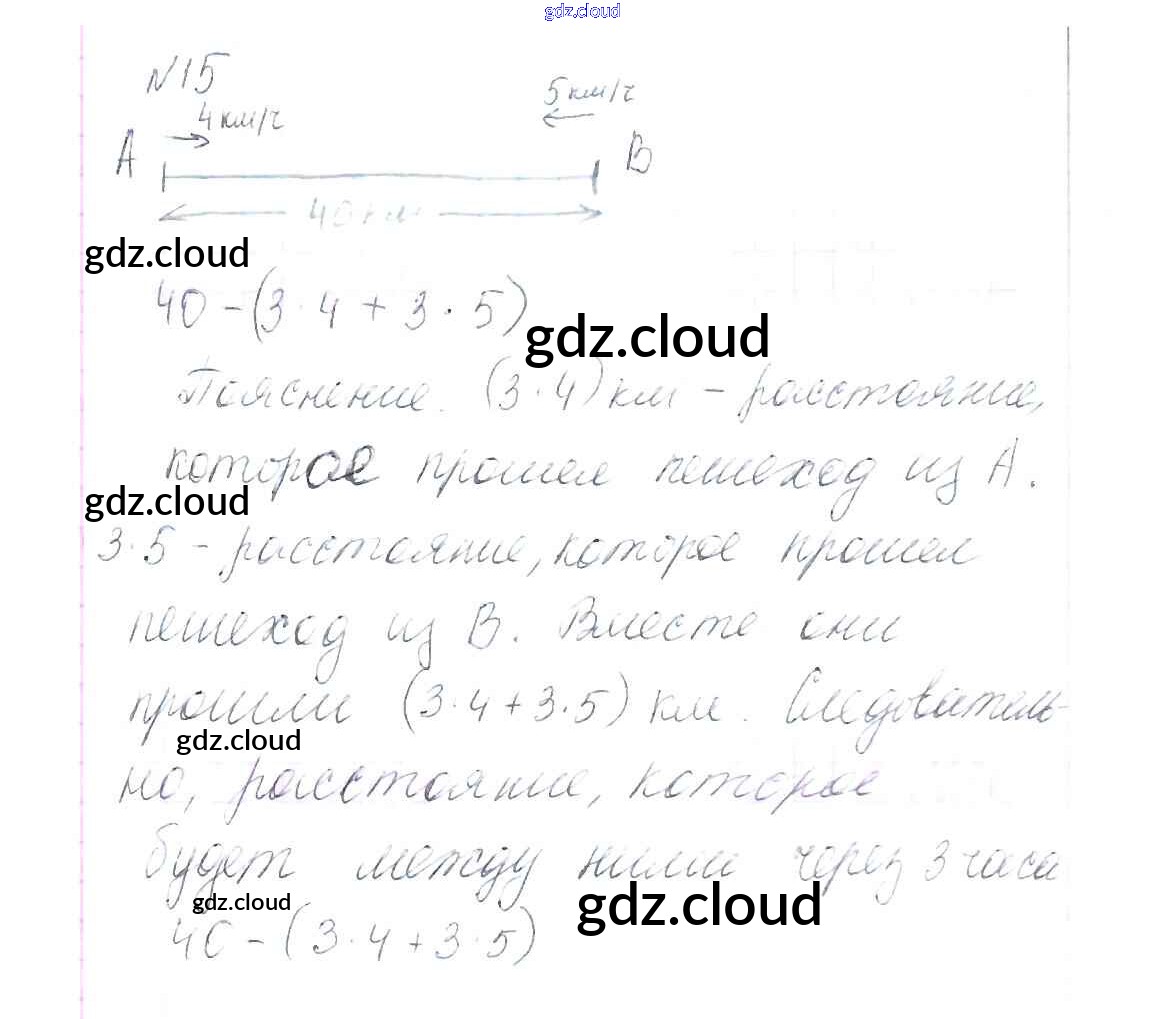 gdz.cloud
№15
4 км/ч
5 км/ч
А
В
40 км
gdz.cloud
40 - (3 · 4 + 3 · 5)
gdz.cloud
Пояснение. (3 · 4) км - расстояние,
которое прошел пешеход из А.
gdz.cloud
3 · 5 - расстояние, которое прошел
пешеход из В. Вместе они
прошли (3 · 4 + 3 · 5) км. Следователь-
gdz.cloud
но, расстояние, которое
будет между ними через 3 часа
gdz.cloud
gdz.cloud
40 - (3 · 4 + 3 · 5)